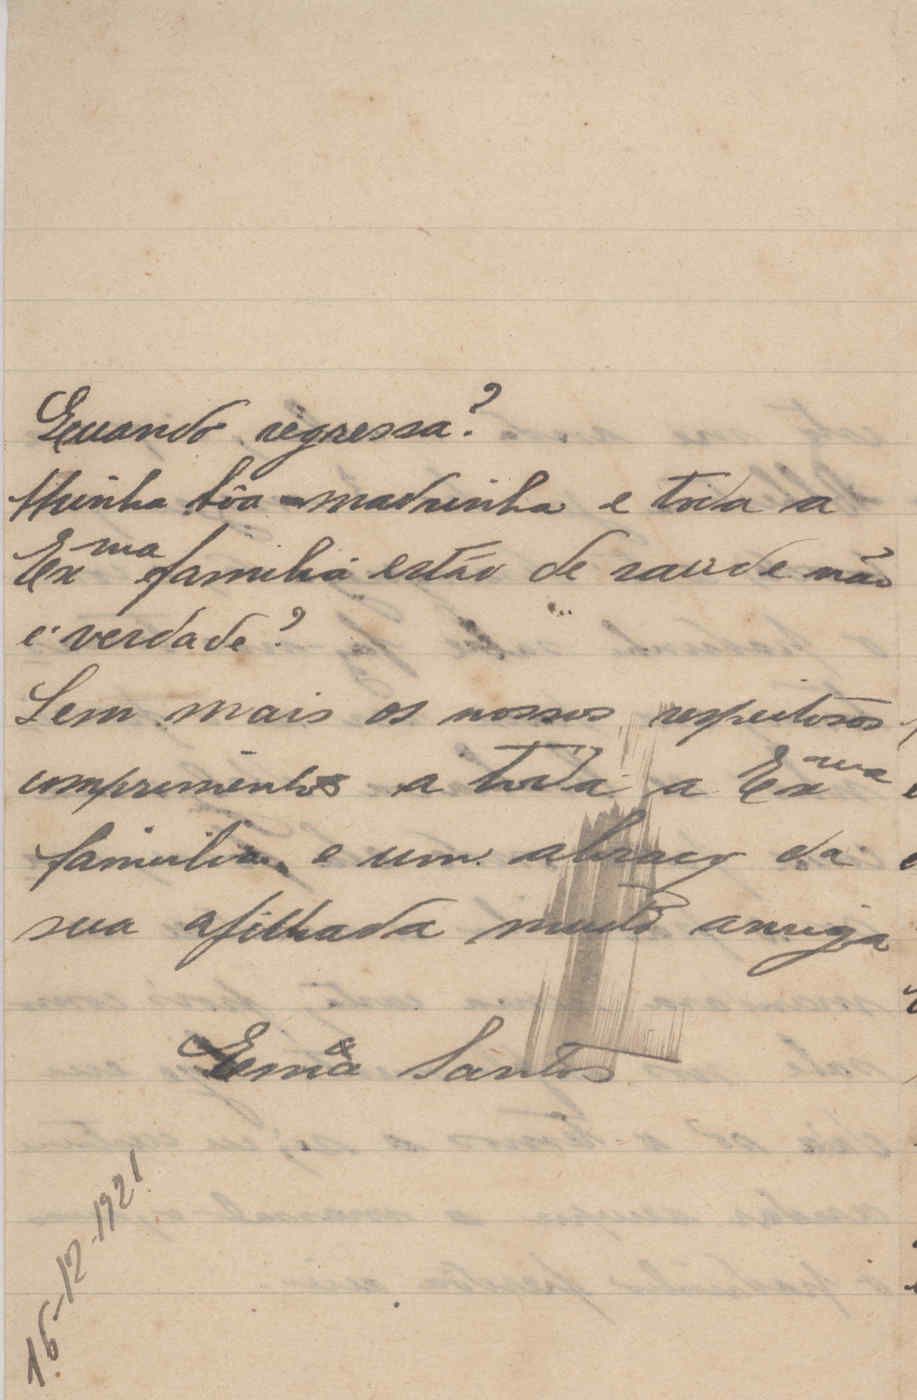 Quando regressa?
Minha bôa madrinha e toda a
Exma familia estão de saude não
é verdade?
Sem mais os nossos respeitosos
comprimentos a toda a Exma
familia, e um abraço da
sua afilhada muito amiga
Santos
16-12-1921